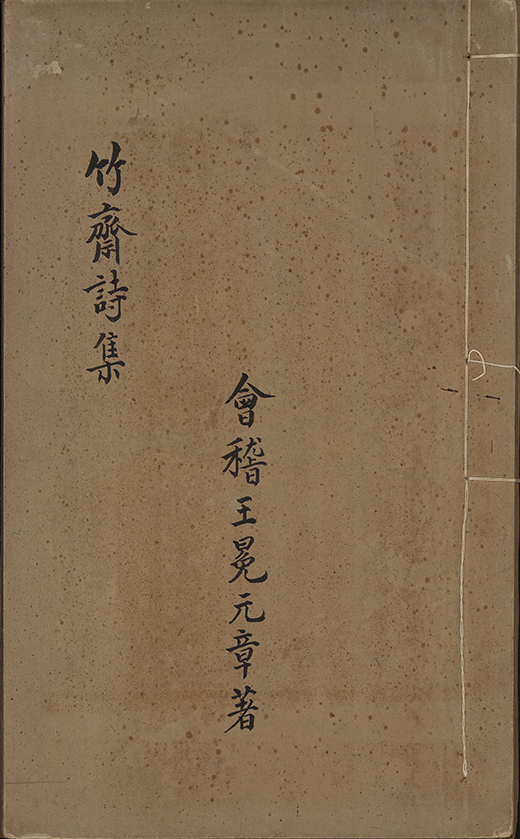 會稽王冕元章著
竹齋詩集